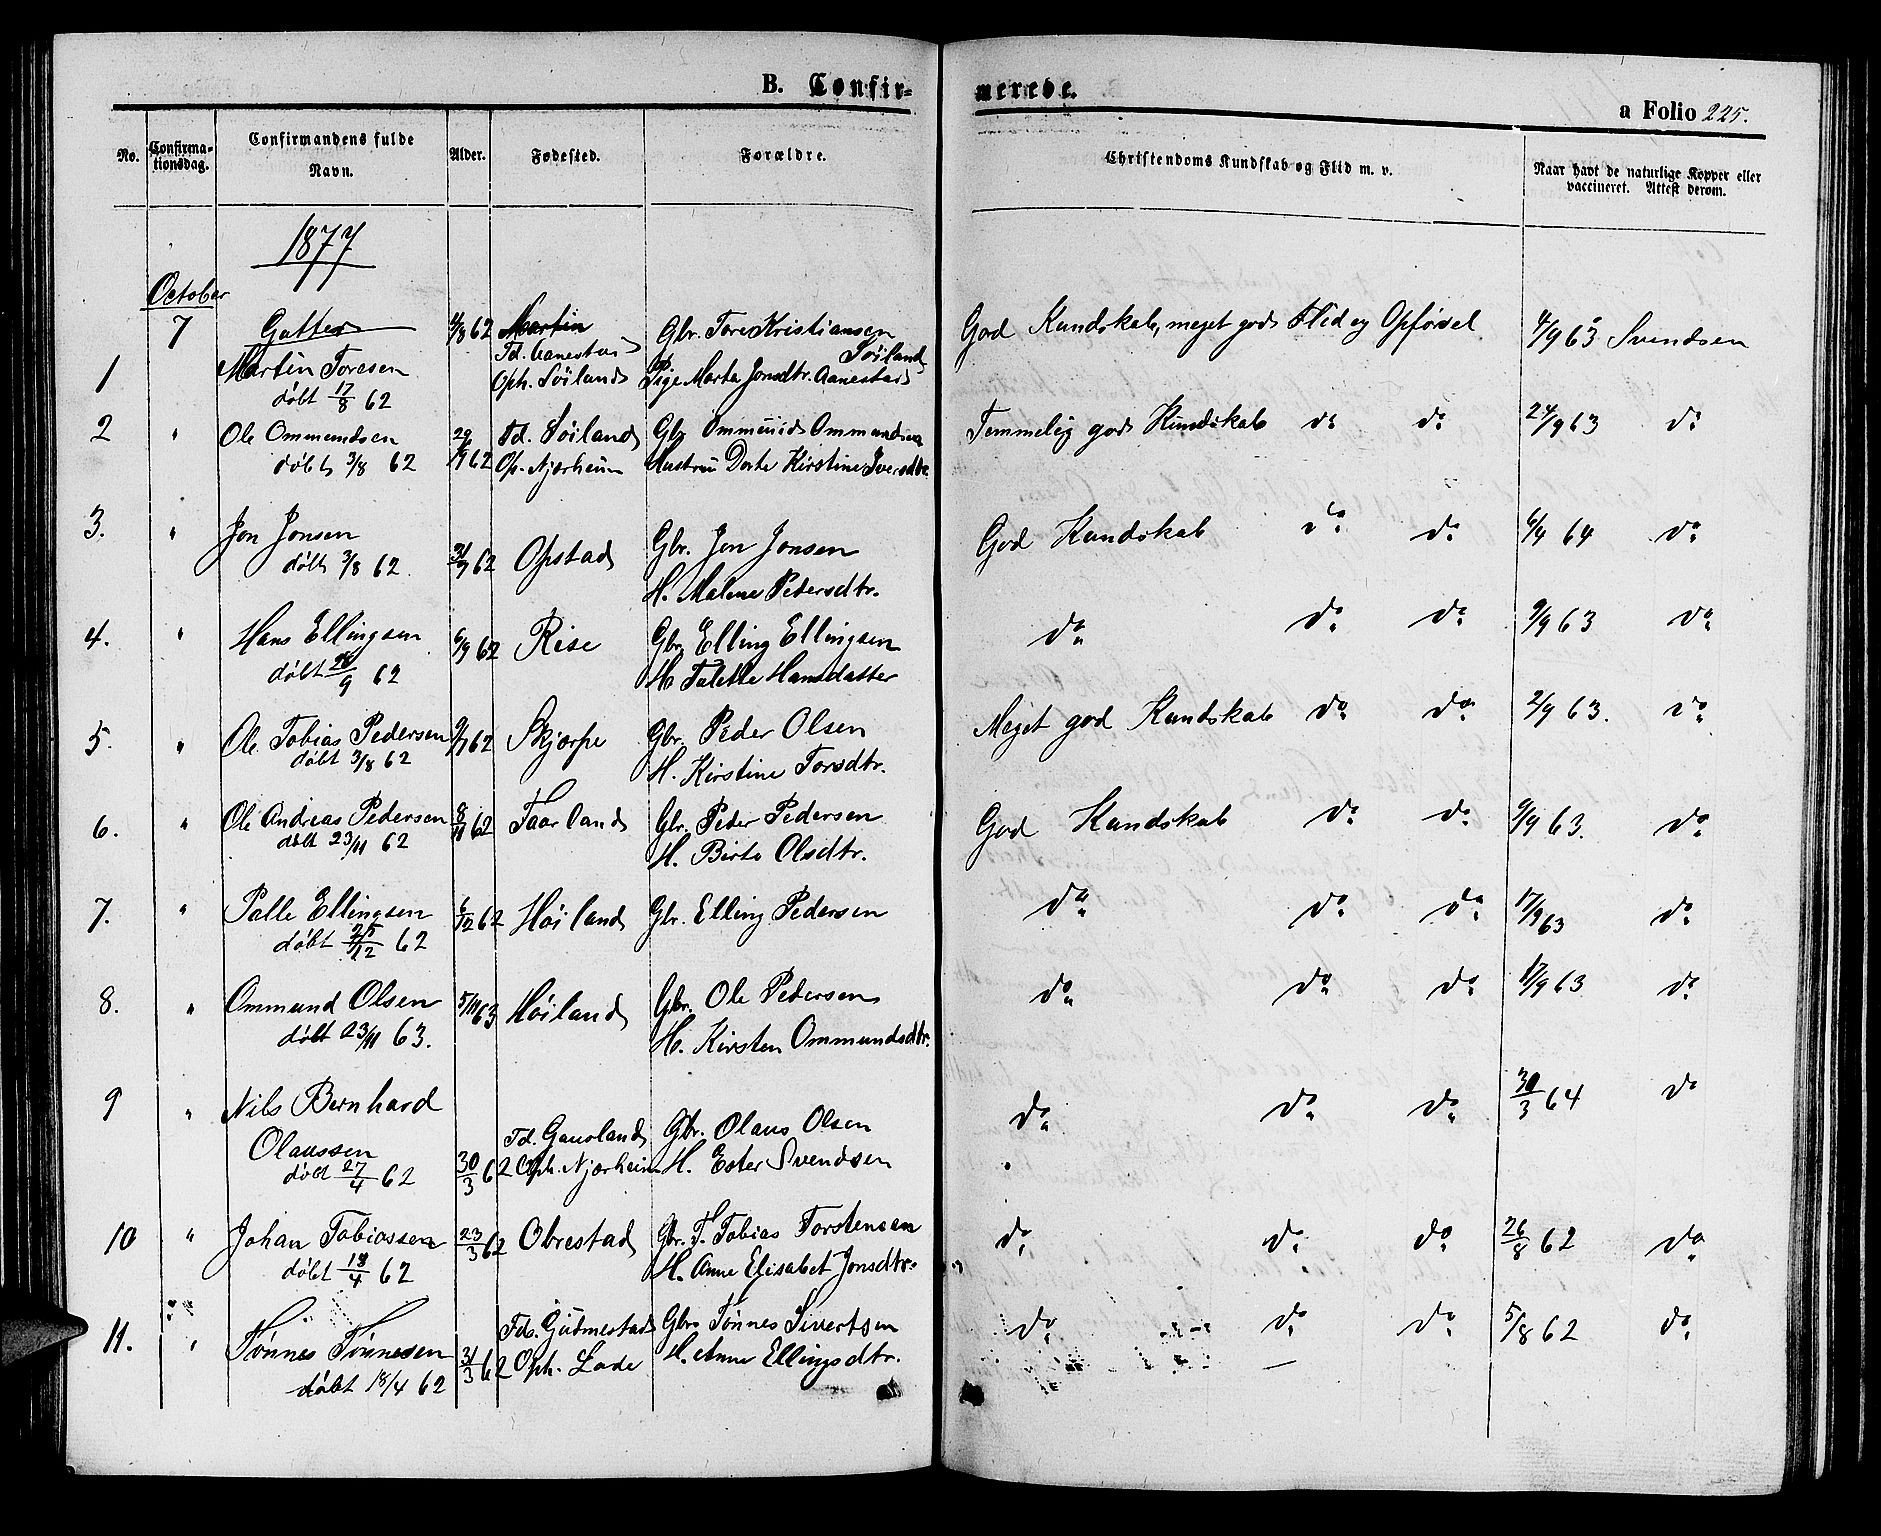 B. Confir-
merede.
a Folio 225.
No.
Confirma-
tionsdag.
Confirmandens fulde
Navn.
Alder.
Fødested.
Forældre.
Christendoms Kundskab og Flid m. v.
Naar havt de naturlige Kopper eller
vaccineret. Attest derom.
1877
October
7 Gutter 4/8 62 Martin Gbr. Tore Kristiansen God Kundskab, meget god Flid og Opførsel 4/9 63 Svendsen
Fd. Aanestad Søiland
1 Martin Toresen Oph. Søiland Pige Marta Jonsdtr. Aanestad
døbt 17/8 62
2 " Ole Ommundsen 29/7 62 Fd. Søiland Gbr Ommund Ommundsen Temmelig god Kundskab do do 24/9 63 do
døbt 3/8 62 Op. Njærheim Hustru Dorte Kirstine Iversdtr
3. " Jon Jonsen Gbr. Jon Jonsen God Kundskab do do 6/4 64 do
døbt 3/8 62 31/7 62 Opstad
H. Malene Pedersdtr.
4. " Hans Ellingsen 6/9 62 Rise Gbr Elling Ellingsen do do do 9/9 63 do
døbt 28/9 62 H Talette Hansdatter
5. " Ole Tobias Pedersen 9/7 62 Skjærpe Gbr. Peder Olsen Meget god Kundskab do do 2/9 63. do
døbt 3/8 62 H. Kirstine Torsdtr.
6. " Ole Andreas Pedersen 8/11 62 Taarland Gbr. Peder Pedersen God Kundskab do do 9/9 63. do
døbt 23/11 62 H. Birte Olsdtr.
7. " Palle Ellingsen 6/12 62 Høiland Gbr. Elling Pedersen do do do 17/9 63 do
døbt 25/12 62
8. " Ommund Olsen 5/11 63 Høiland Gbr. Ole Pedersen do do do 17/9 63 do
døbt 23/11 63. H. Kirsten Ommundsdtr.
9 " Nils Bernhard do do do 30/3 64 do
Olaussen Fd. Gausland Gbr. Olaus Olsen
døbt 27/4 62 30/3 62 Oph. Njærheim H. Ester Svendsen
10 " Johan Tobiassen 23/3 62 Obrestad Gbr. T. Tobias Torstensen do do do 26/8 62 do
døbt 18/4 62 H. Anne Elisabet Jonsdtr.
11. " Tønnes Tønnesen 31/3 62 Fd. Gudmestad Gbr Tønnes Sivertsen do do do 5/8 62 do
døbt 18/4 62 Oph. Lode H. Anne Ellingsdtr.